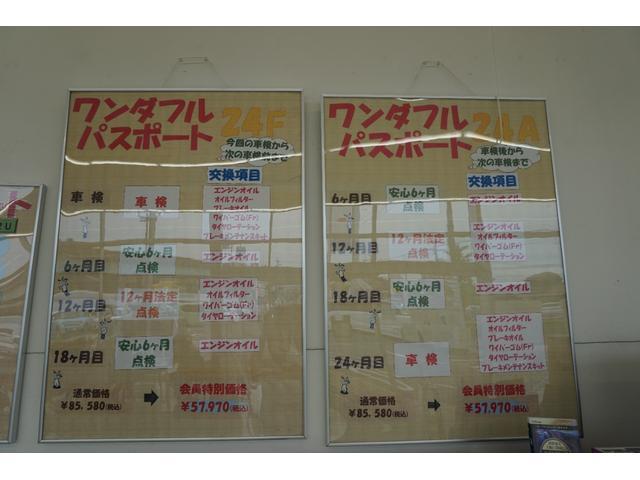 ワンダフル
パスポート
24F
今回の車検から
次の車検前まで
交換項目
車検
車検
エンジンオイル
オイルフィルター
ブレーキオイル
ワイパーゴム(Fr)
タイヤローテーション
ブレーキメンテナンスキット
6ヶ月目
安心6ヶ月
点検
エンジンオイル
12ヶ月目
12ヶ月法定
点検
エンジンオイル
オイルフィルター
ワイパーゴム(Fr)
タイヤローテーション
18ヶ月目
安心6ヶ月
点検
エンジンオイル
通常価格
¥85,580(税込)
会員特別価格
¥57,970(税込)
ワンダフル
パスポート
24A
車検後から
次の車検まで
交換項目
6ヶ月目
安心6ヶ月
点検
エンジンオイル
12ヶ月目
12ヶ月法定
点検
エンジンオイル
オイルフィルター
ワイパーゴム(Fr)
タイヤローテーション
18ヶ月目
安心6ヶ月
点検
エンジンオイル
24ヶ月目
車検
エンジンオイル
オイルフィルター
ブレーキオイル
ワイパーゴム(Fr)
タイヤローテーション
ブレーキメンテナンスキット
通常価格
¥85,580(税込)
会員特別価格
¥57,970(税込)